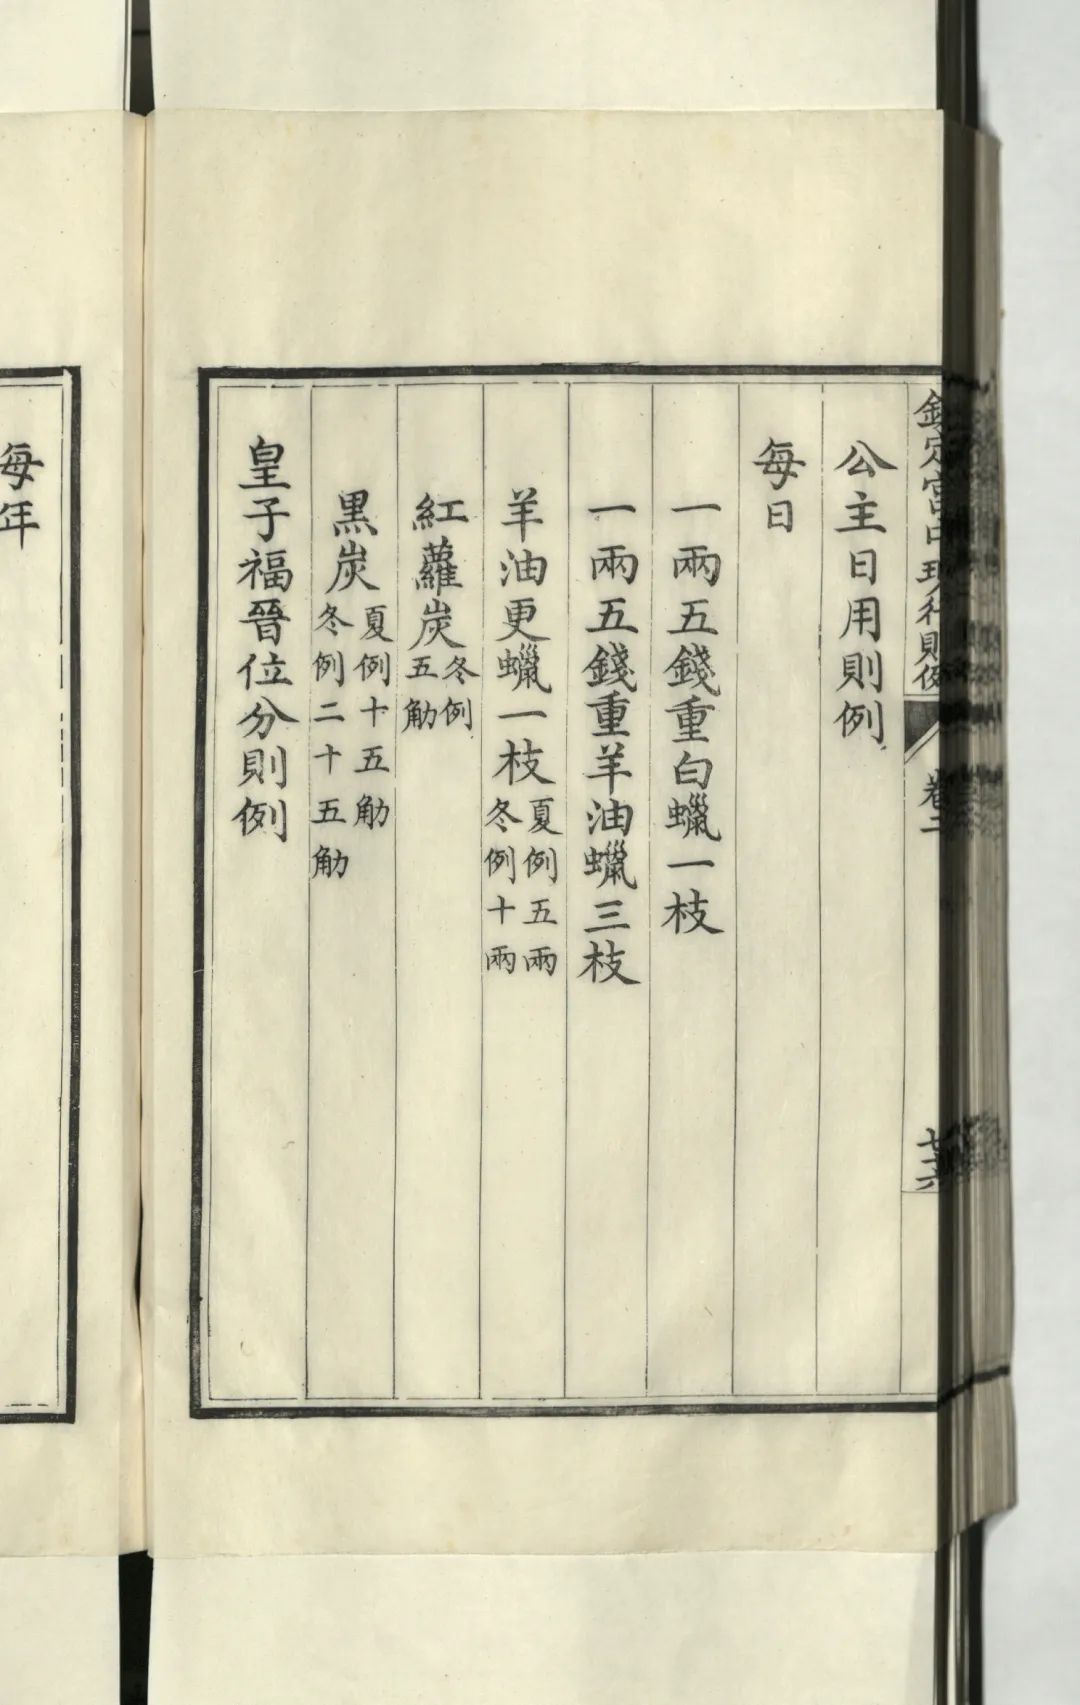 欽定宮中現行則例
卷二
七十六
公主日用則例
每日
一兩五錢重白蠟一枝
一兩五錢重羊油蠟三枝
羊油更蠟一枝夏例五兩
冬例十兩
紅蘿炭冬例
五觔
黑炭夏例十五觔
冬例二十五觔
皇子福晉位分則例
每年